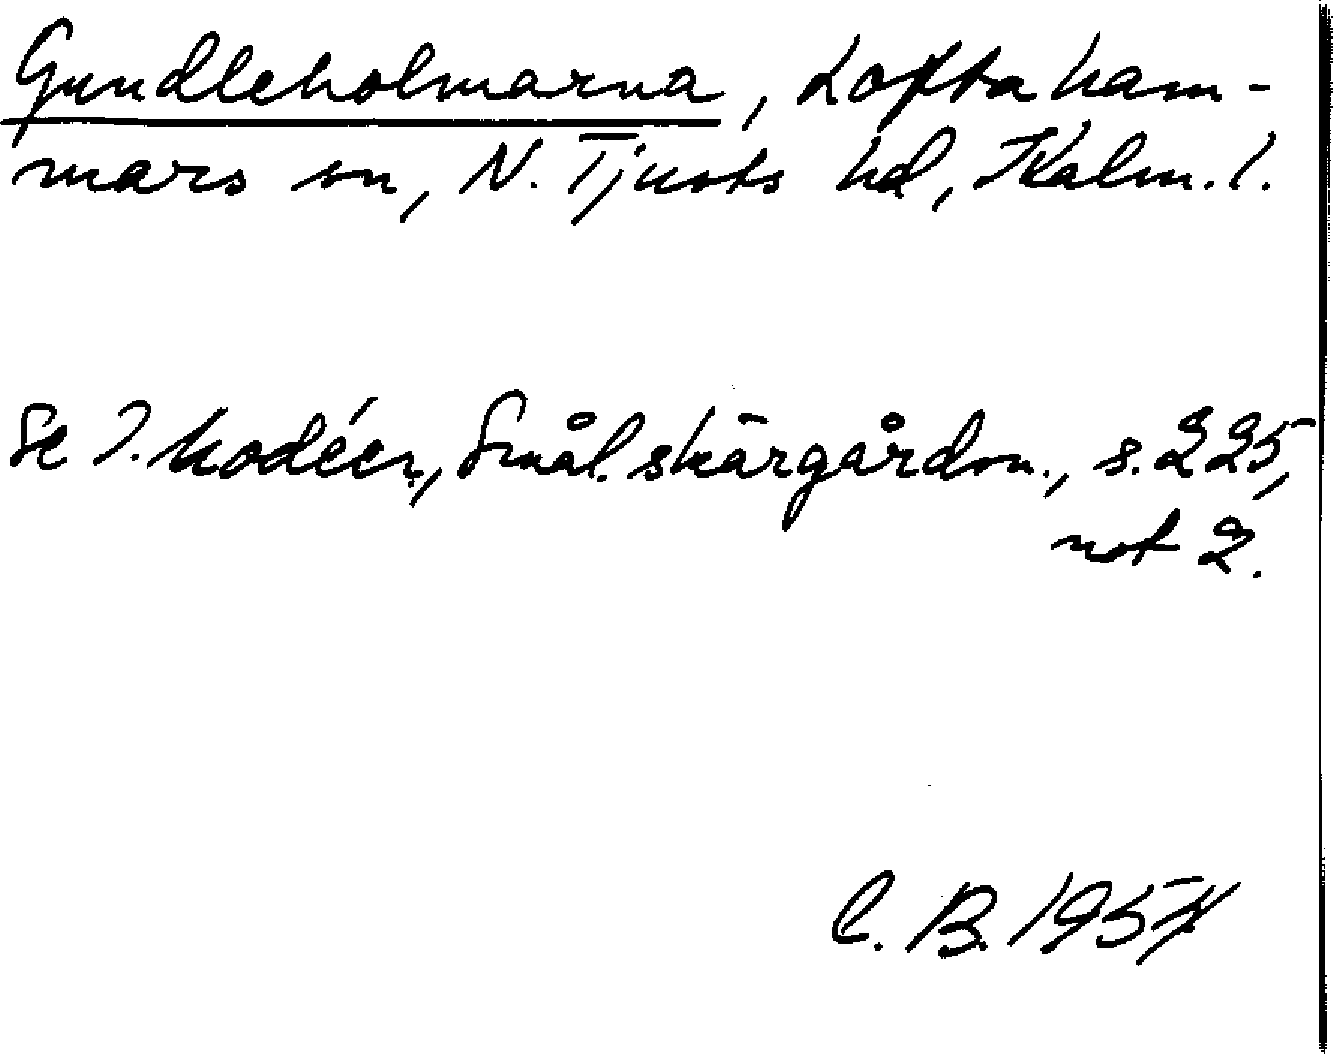 Gundleholmarna, Loftaham-
mars sn, N. Tjusts hd, Kalm. l.
Se I. Modéer, Smål. skärgårdsn., s. 225,
not 2.
C. B. 1954